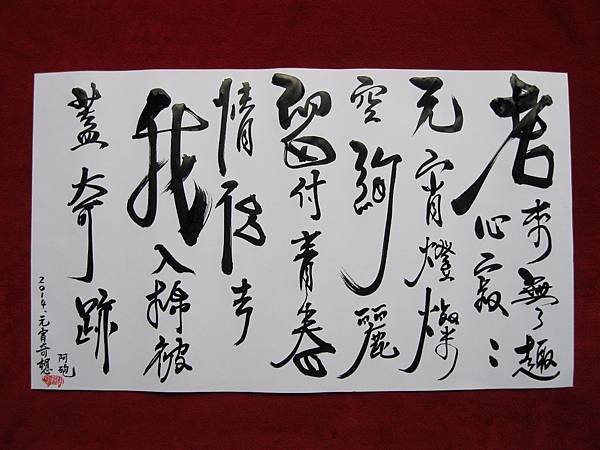 老來無趣
心寂〻
元宵燈燦
空絢麗
留付青春
情侶去
我入棉被
蓋奇跡
2014.元宵奇想
阿砲